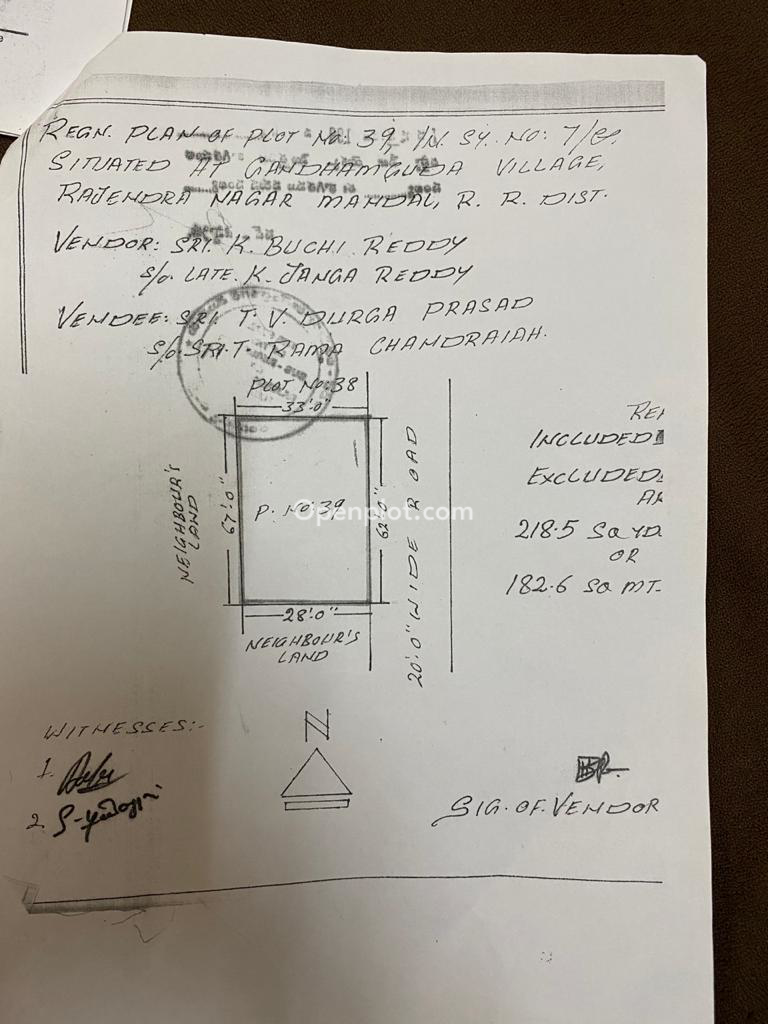 REGN. PLAN OF PLOT NO: 39, IN. SY. NO: 7/
SITUATED AT GANDHAMGUDA VILLAGE,
RAJENDRA NAGAR MANDAL, R. R. DIST.
VENDOR: SRI. K. BUCHI REDDY
S/o. LATE. K. JANGA REDDY
VENDEE: SRI. T. V. DURGA PRASAD
S/o. SRI. T. RAMA CHANDRAIAH.
PLOT NO: 38
33'.0"
NEIGHBOUR'S
LAND
67'.0"
P. NO: 39
62'.0"
20'.0" WIDE ROAD
28'.0"
NEIGHBOUR'S
LAND
REF
INCLUDED
EXCLUDED
AR
218.5 SQ YD.
OR
182.6 SQ MT.
Openplot.com
WITNESSES:-
1.
2.
N
SIG. OF. VENDOR